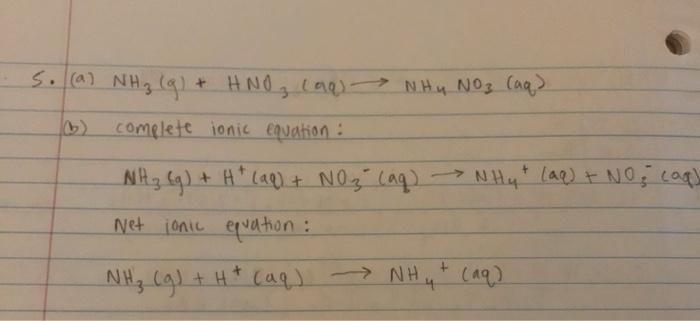 5. (a) NH₃ (g) + HNO₃ (aq) → NH₄ NO₃ (aq)
(b) complete ionic equation :
NH₃ (g) + H⁺ (aq) + NO₃⁻ (aq) → NH₄⁺ (aq) + NO₃⁻ (aq)
Net ionic equation :
NH₃ (g) + H⁺ (aq) → NH₄⁺ (aq)